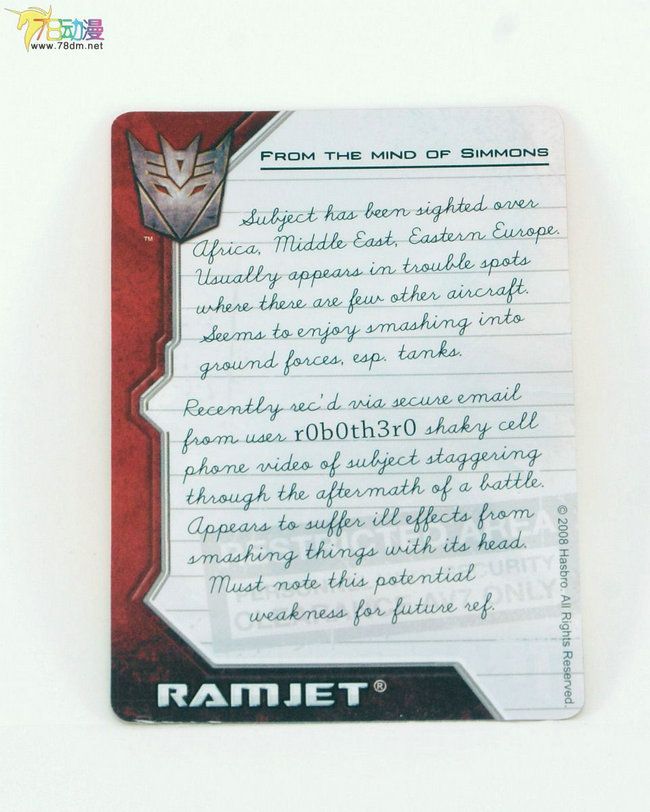 78动漫
www.78dm.net
FROM THE MIND OF SIMMONS
TM
Subject has been sighted over
Africa, Middle East, Eastern Europe.
Usually appears in trouble spots
where there are few other aircraft.
Seems to enjoy smashing into
ground forces, esp. tanks.
Recently rec'd via secure email
from user r0b0th3r0 shaky cell
phone video of subject staggering
through the aftermath of a battle.
Appears to suffer ill effects from
smashing things with its head.
Must note this potential
weakness for future ref.
RESTRICTED AREA
SECURITY
CLEARANCE AV7 ONLY
© 2008 Hasbro. All Rights Reserved.
RAMJET®